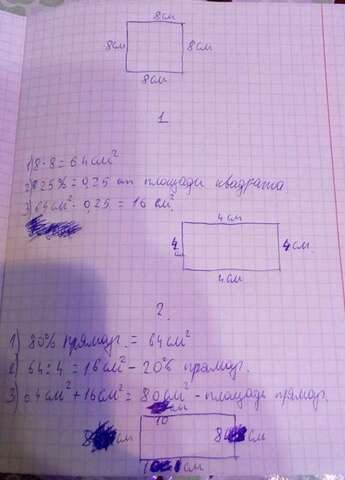 8см
8см
8см
8см
1
1) 8·8=64см²
2) 25%=0,25 от площади квадрата.
3) 64см²·0,25=16см²
4см
4см
4см.
4см
2.
1) 80% прямоуг.=64см²
2) 64:4=16см²-20% прямоуг.
3) 64см²+16см²=80см²-площадь прямоуг.
см
10
8 см
8 см
см